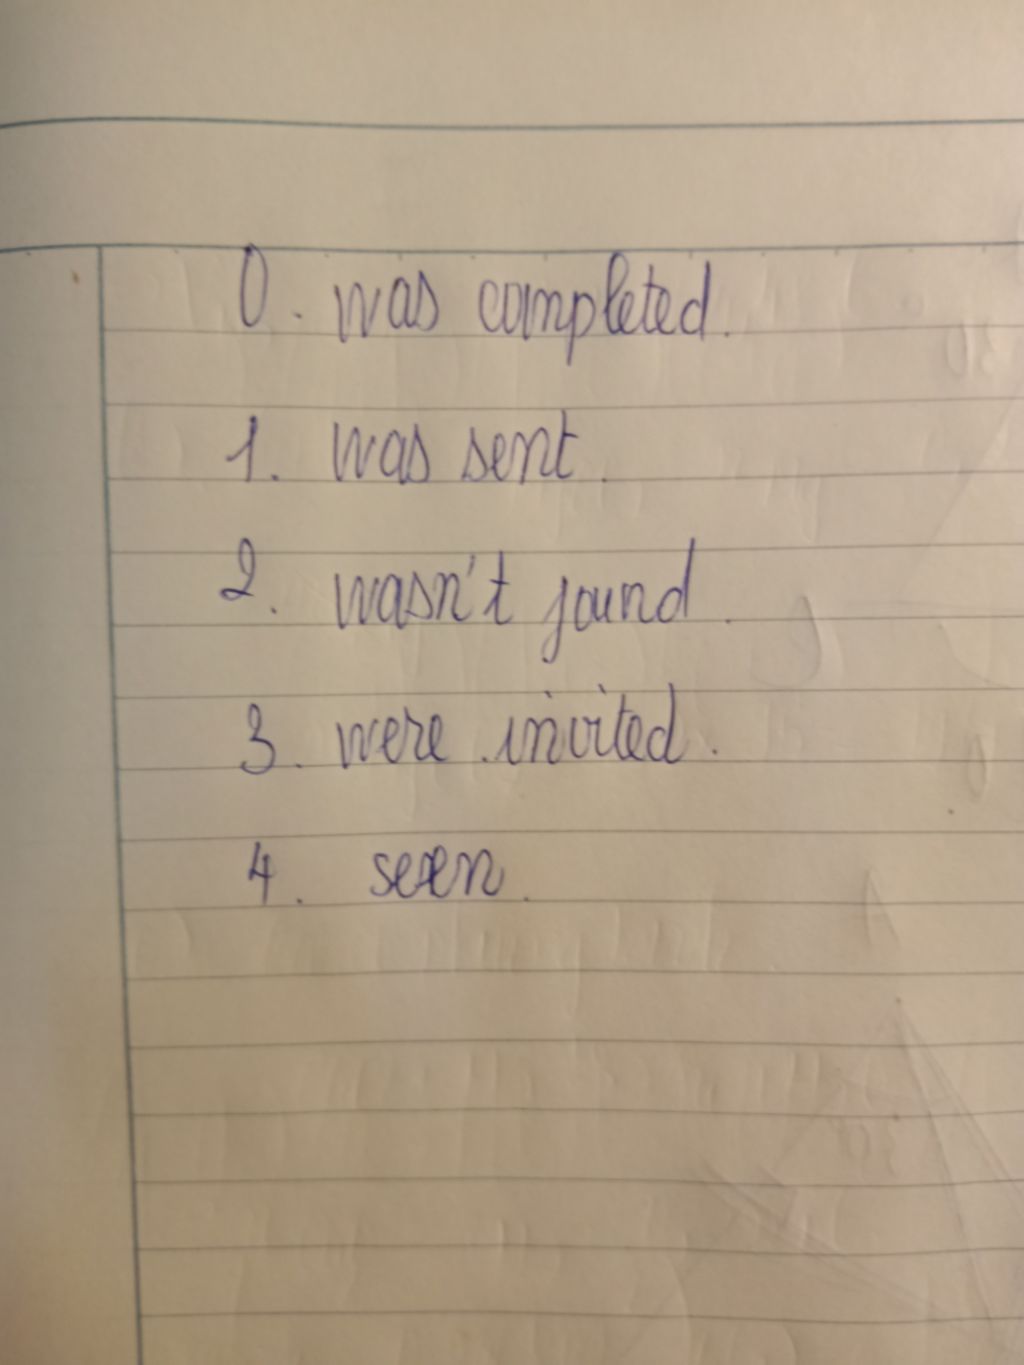 0. was completed.
1. was sent.
2. wasn't found.
3. were invited.
4. seen.